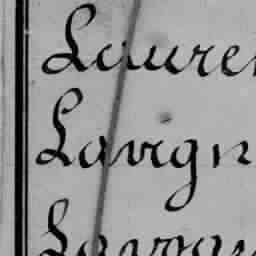 Lauren
Lavign